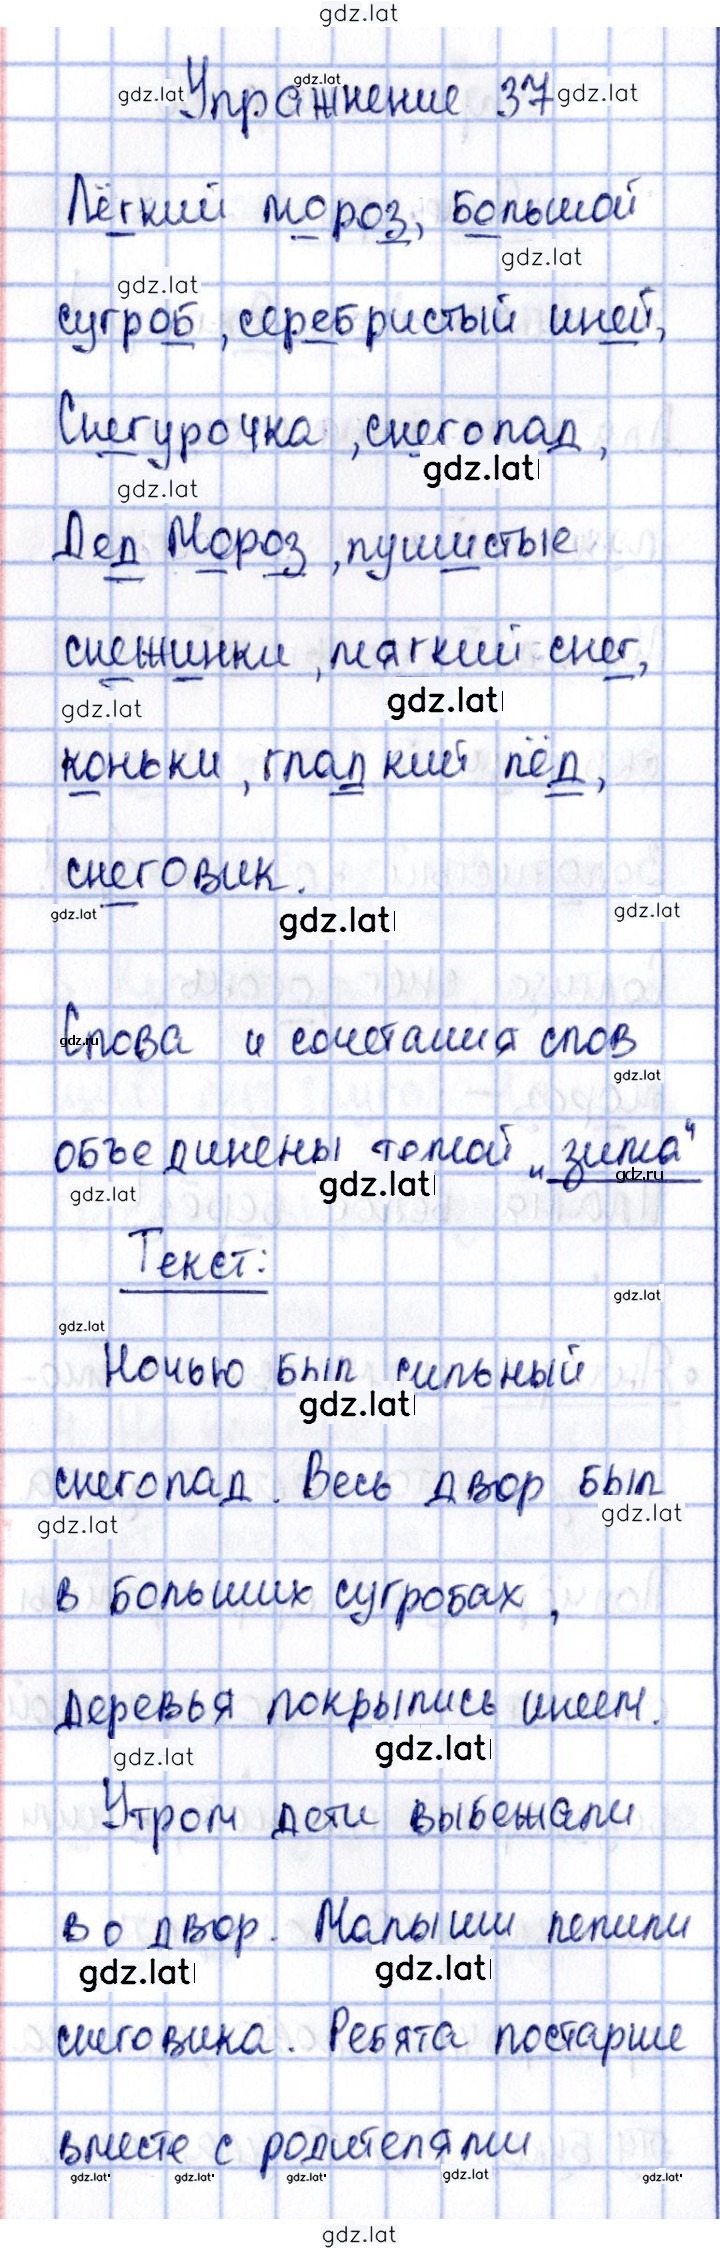 gdz.lat
Упражнение 37
Лёгкий мороз, большой
сугроб, серебристый иней,
Снегурочка, снегопад,
Дед Мороз, пушистые
снежинки, мягкий снег,
коньки, гладкий лёд,
снеговик.
Слова и сочетания слов
объединены темой „зима“
Текст:
Ночью был сильный
снегопад. Весь двор был
в больших сугробах,
деревья покрылись инеем.
Утром дети выбежали
во двор. Малыши лепили
снеговика. Ребята постарше
вместе с родителями
gdz.lat